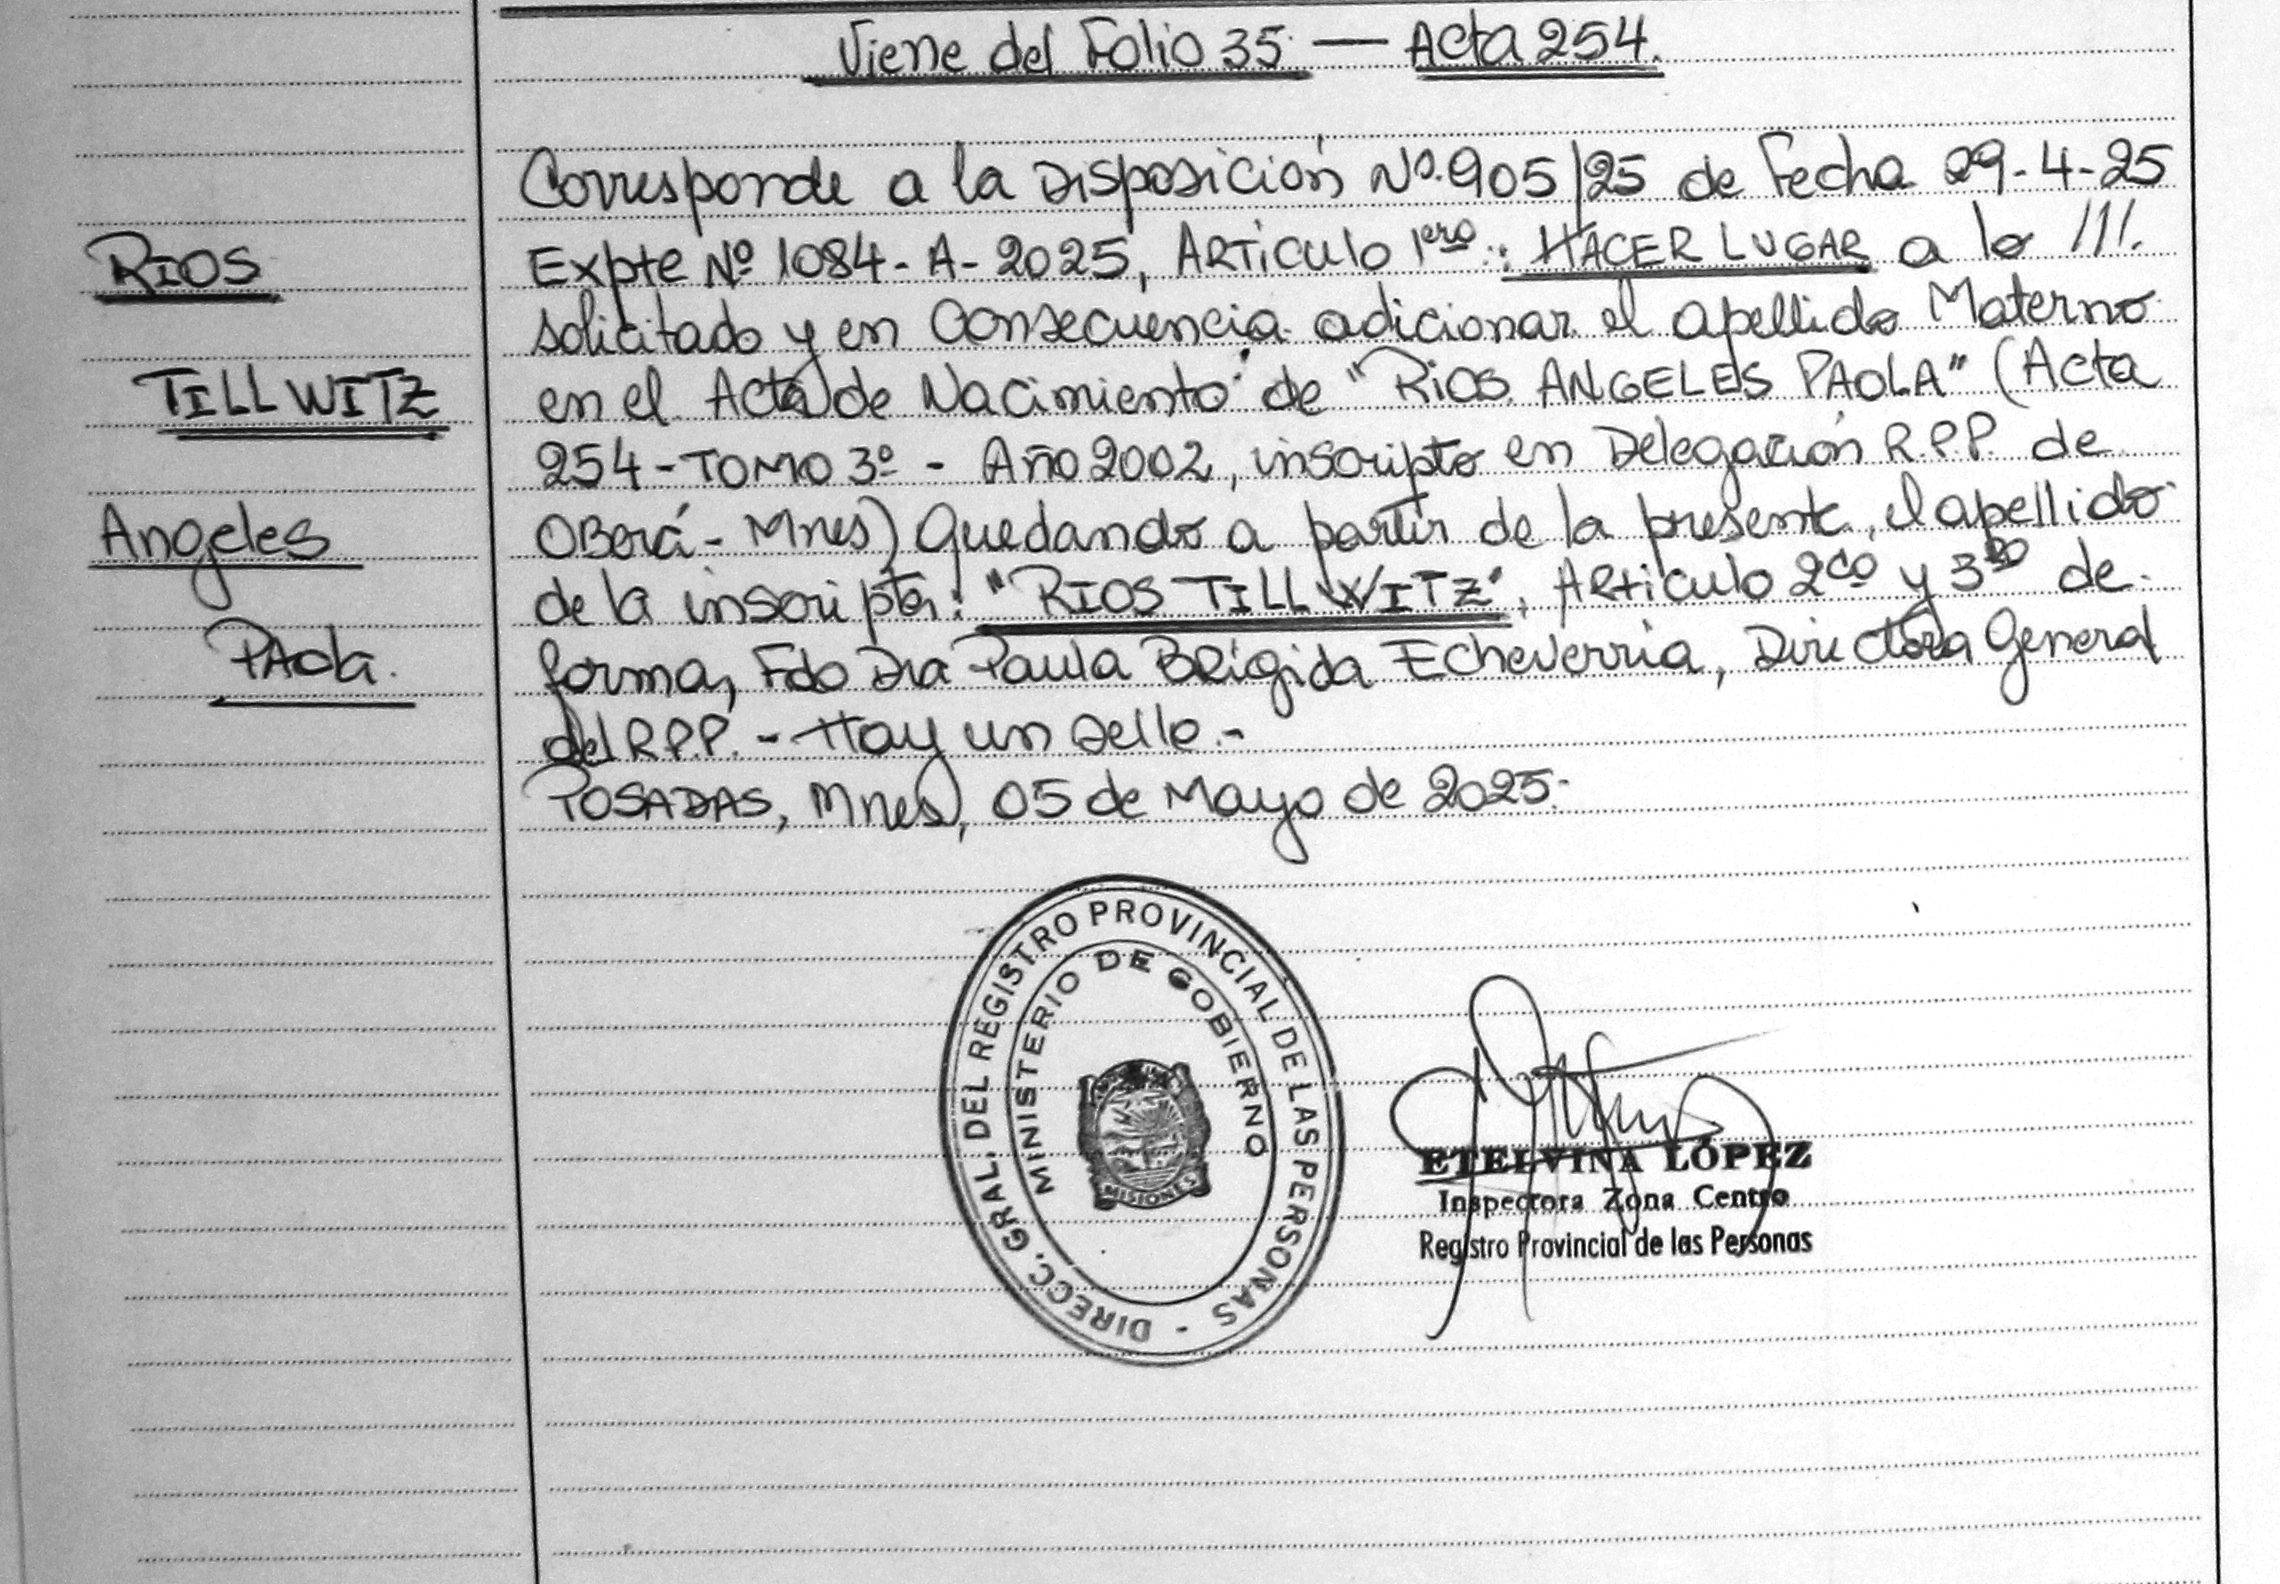 Viene del Folio 35 — Acta 254.
RIOS
TILLWITZ
Angeles
Paola.
Corresponde a la Disposición Nº 905/25 de Fecha 29-4-25
Expte Nº 1084-A-2025, Articulo 1ero: HACER LUGAR a lo ///.
solicitado y en Consecuencia adicionar el apellido Materno
en el Acta de Nacimiento de "RIOS ANGELES PAOLA" (Acta
254-TOMO 3º - Año 2002, inscripto en Delegación R.P.P. de
Oberá - Mnes) Quedando a partir de la presente, el apellido
de la inscripta: "RIOS TILLWITZ", Articulo 2do y 3ro de
forma, Fdo Dra Paula Brígida Echeverria, Directora General
del R.P.P. - Hay un sello.-
POSADAS, Mnes, 05 de Mayo de 2025.-
DIRECC. GRAL. DEL REGISTRO PROVINCIAL DE LAS PERSONAS -
MINISTERIO DE GOBIERNO
MISIONES
ETELVINA LÓPEZ
Inspectora Zona Centro
Registro Provincial de las Personas